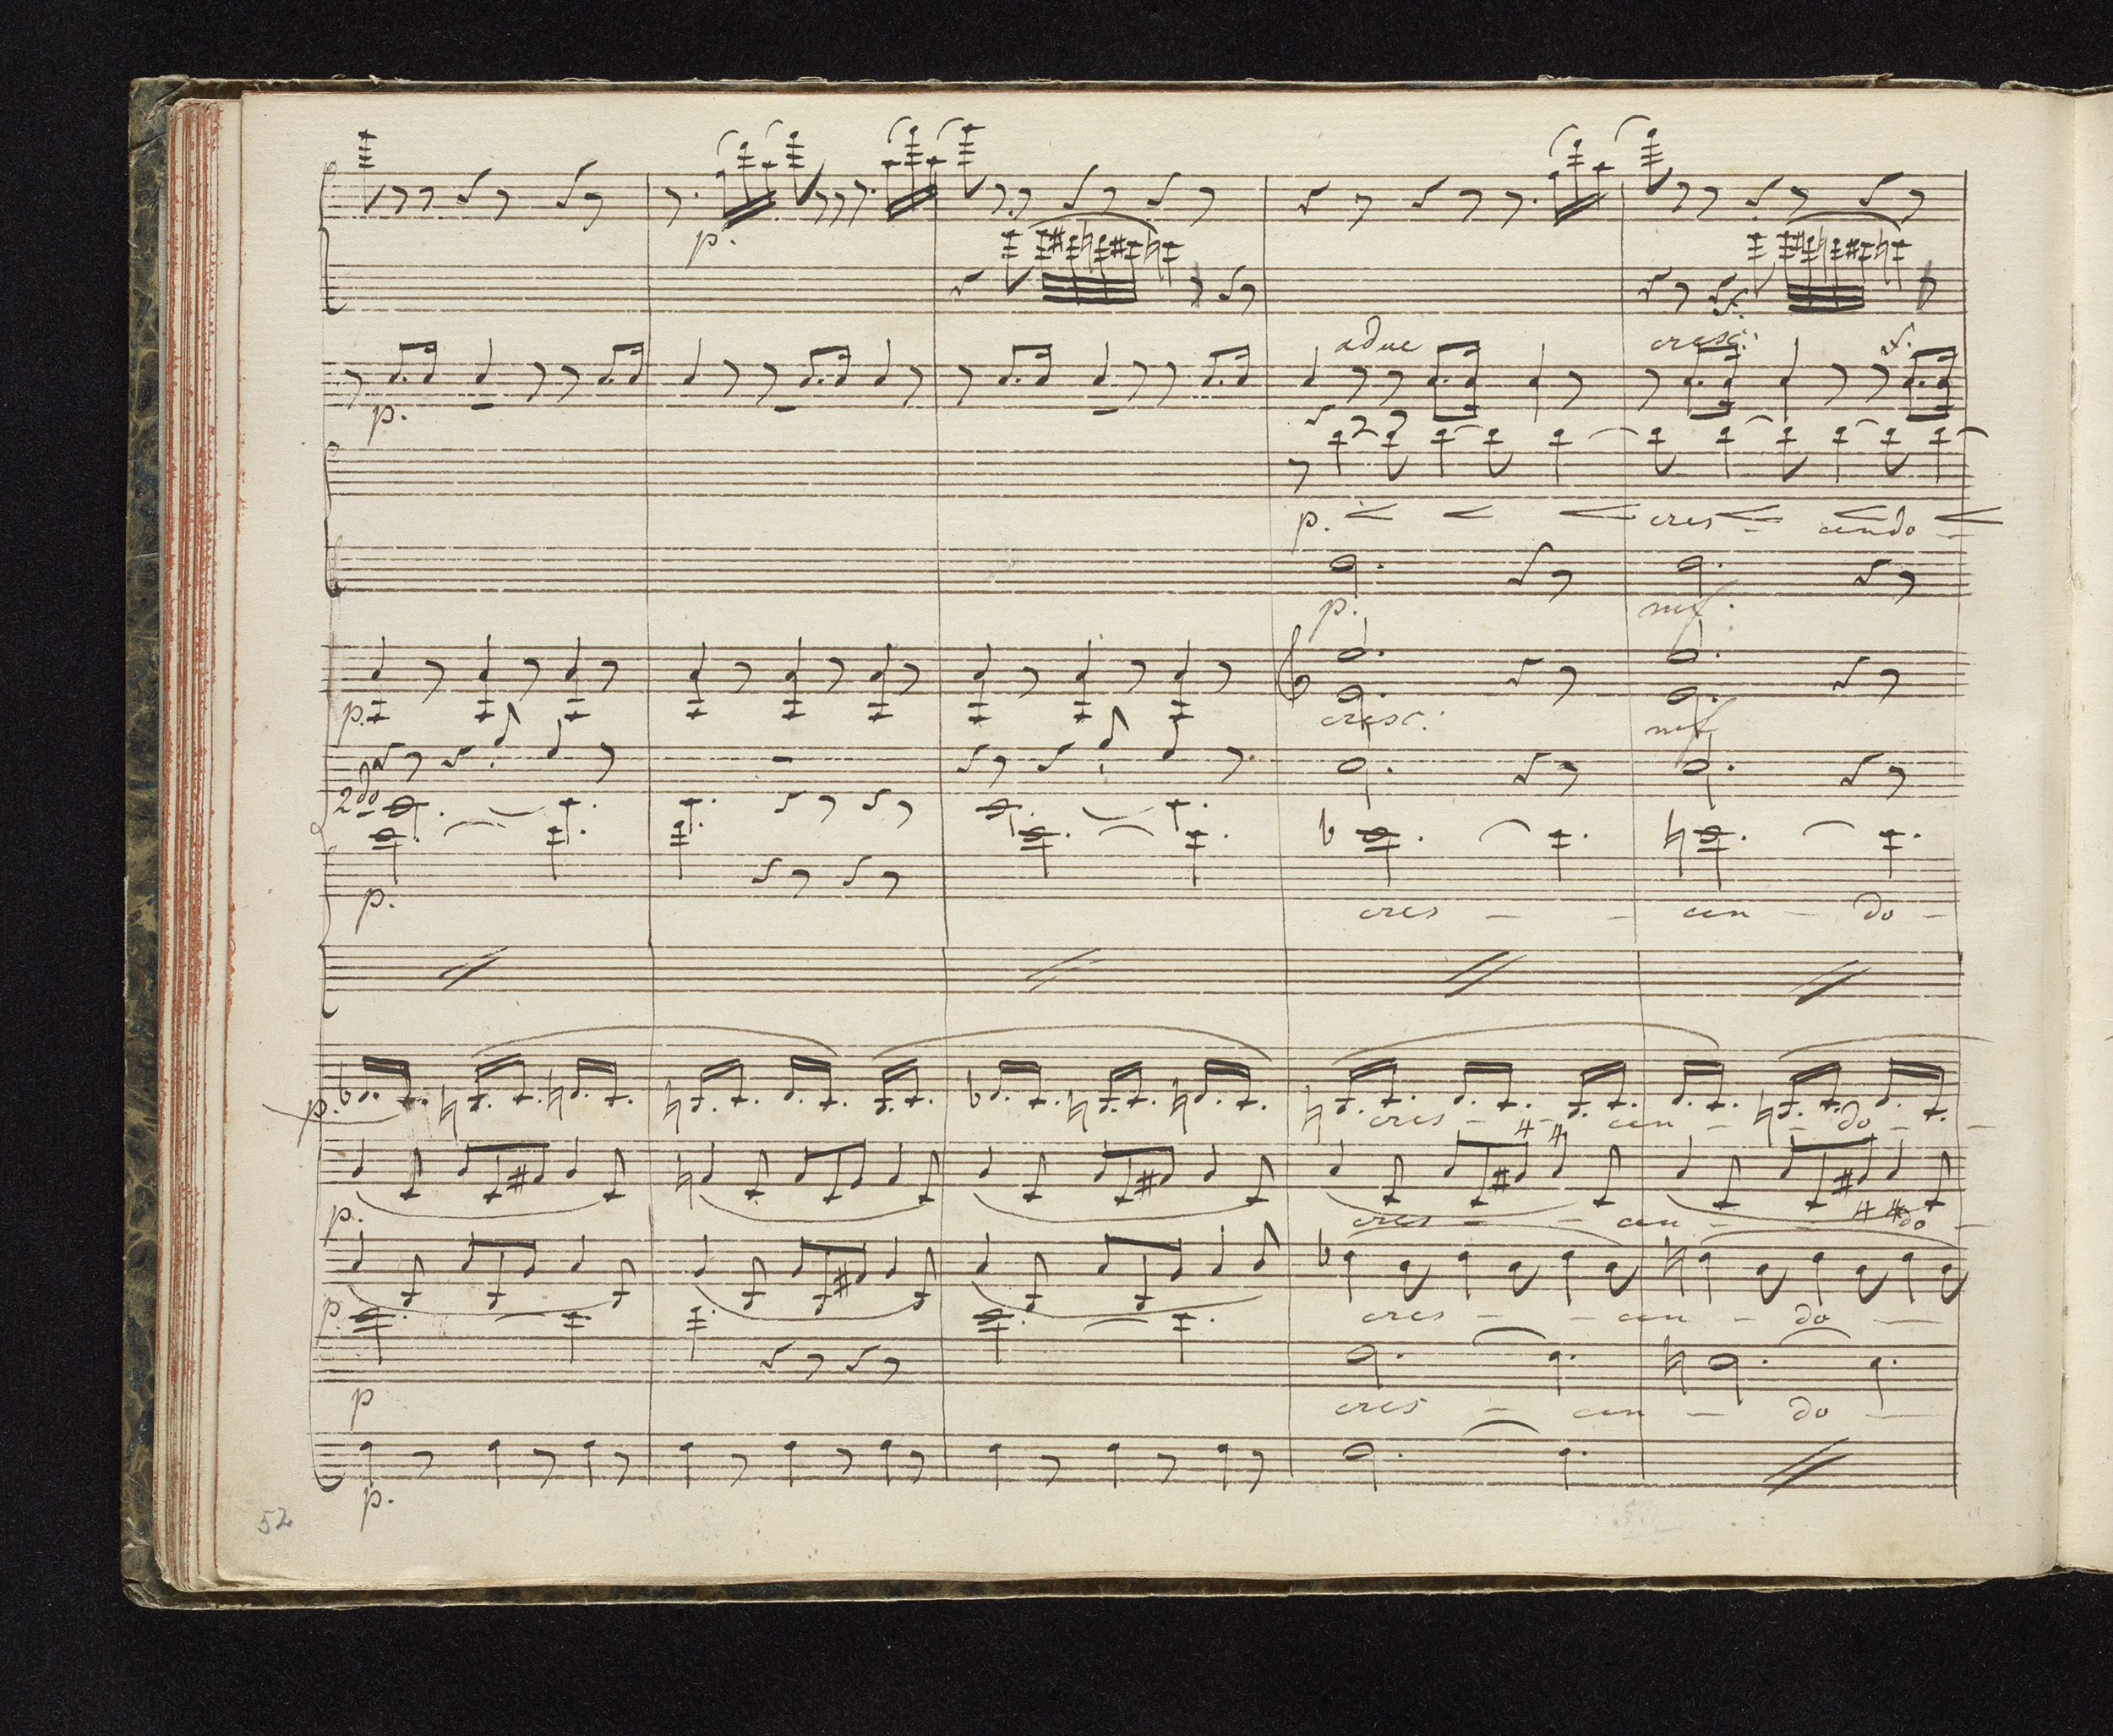 p.
adue cresc: f.
p.
p. cres - cendo -
p. mf.
p. cresc: mf
2do
p. cres - - cen - do -
p. cres - cen - do -
p. cres - - cen - do -
p. cres - - cen - do -
p cres - cen - do -
p.
52